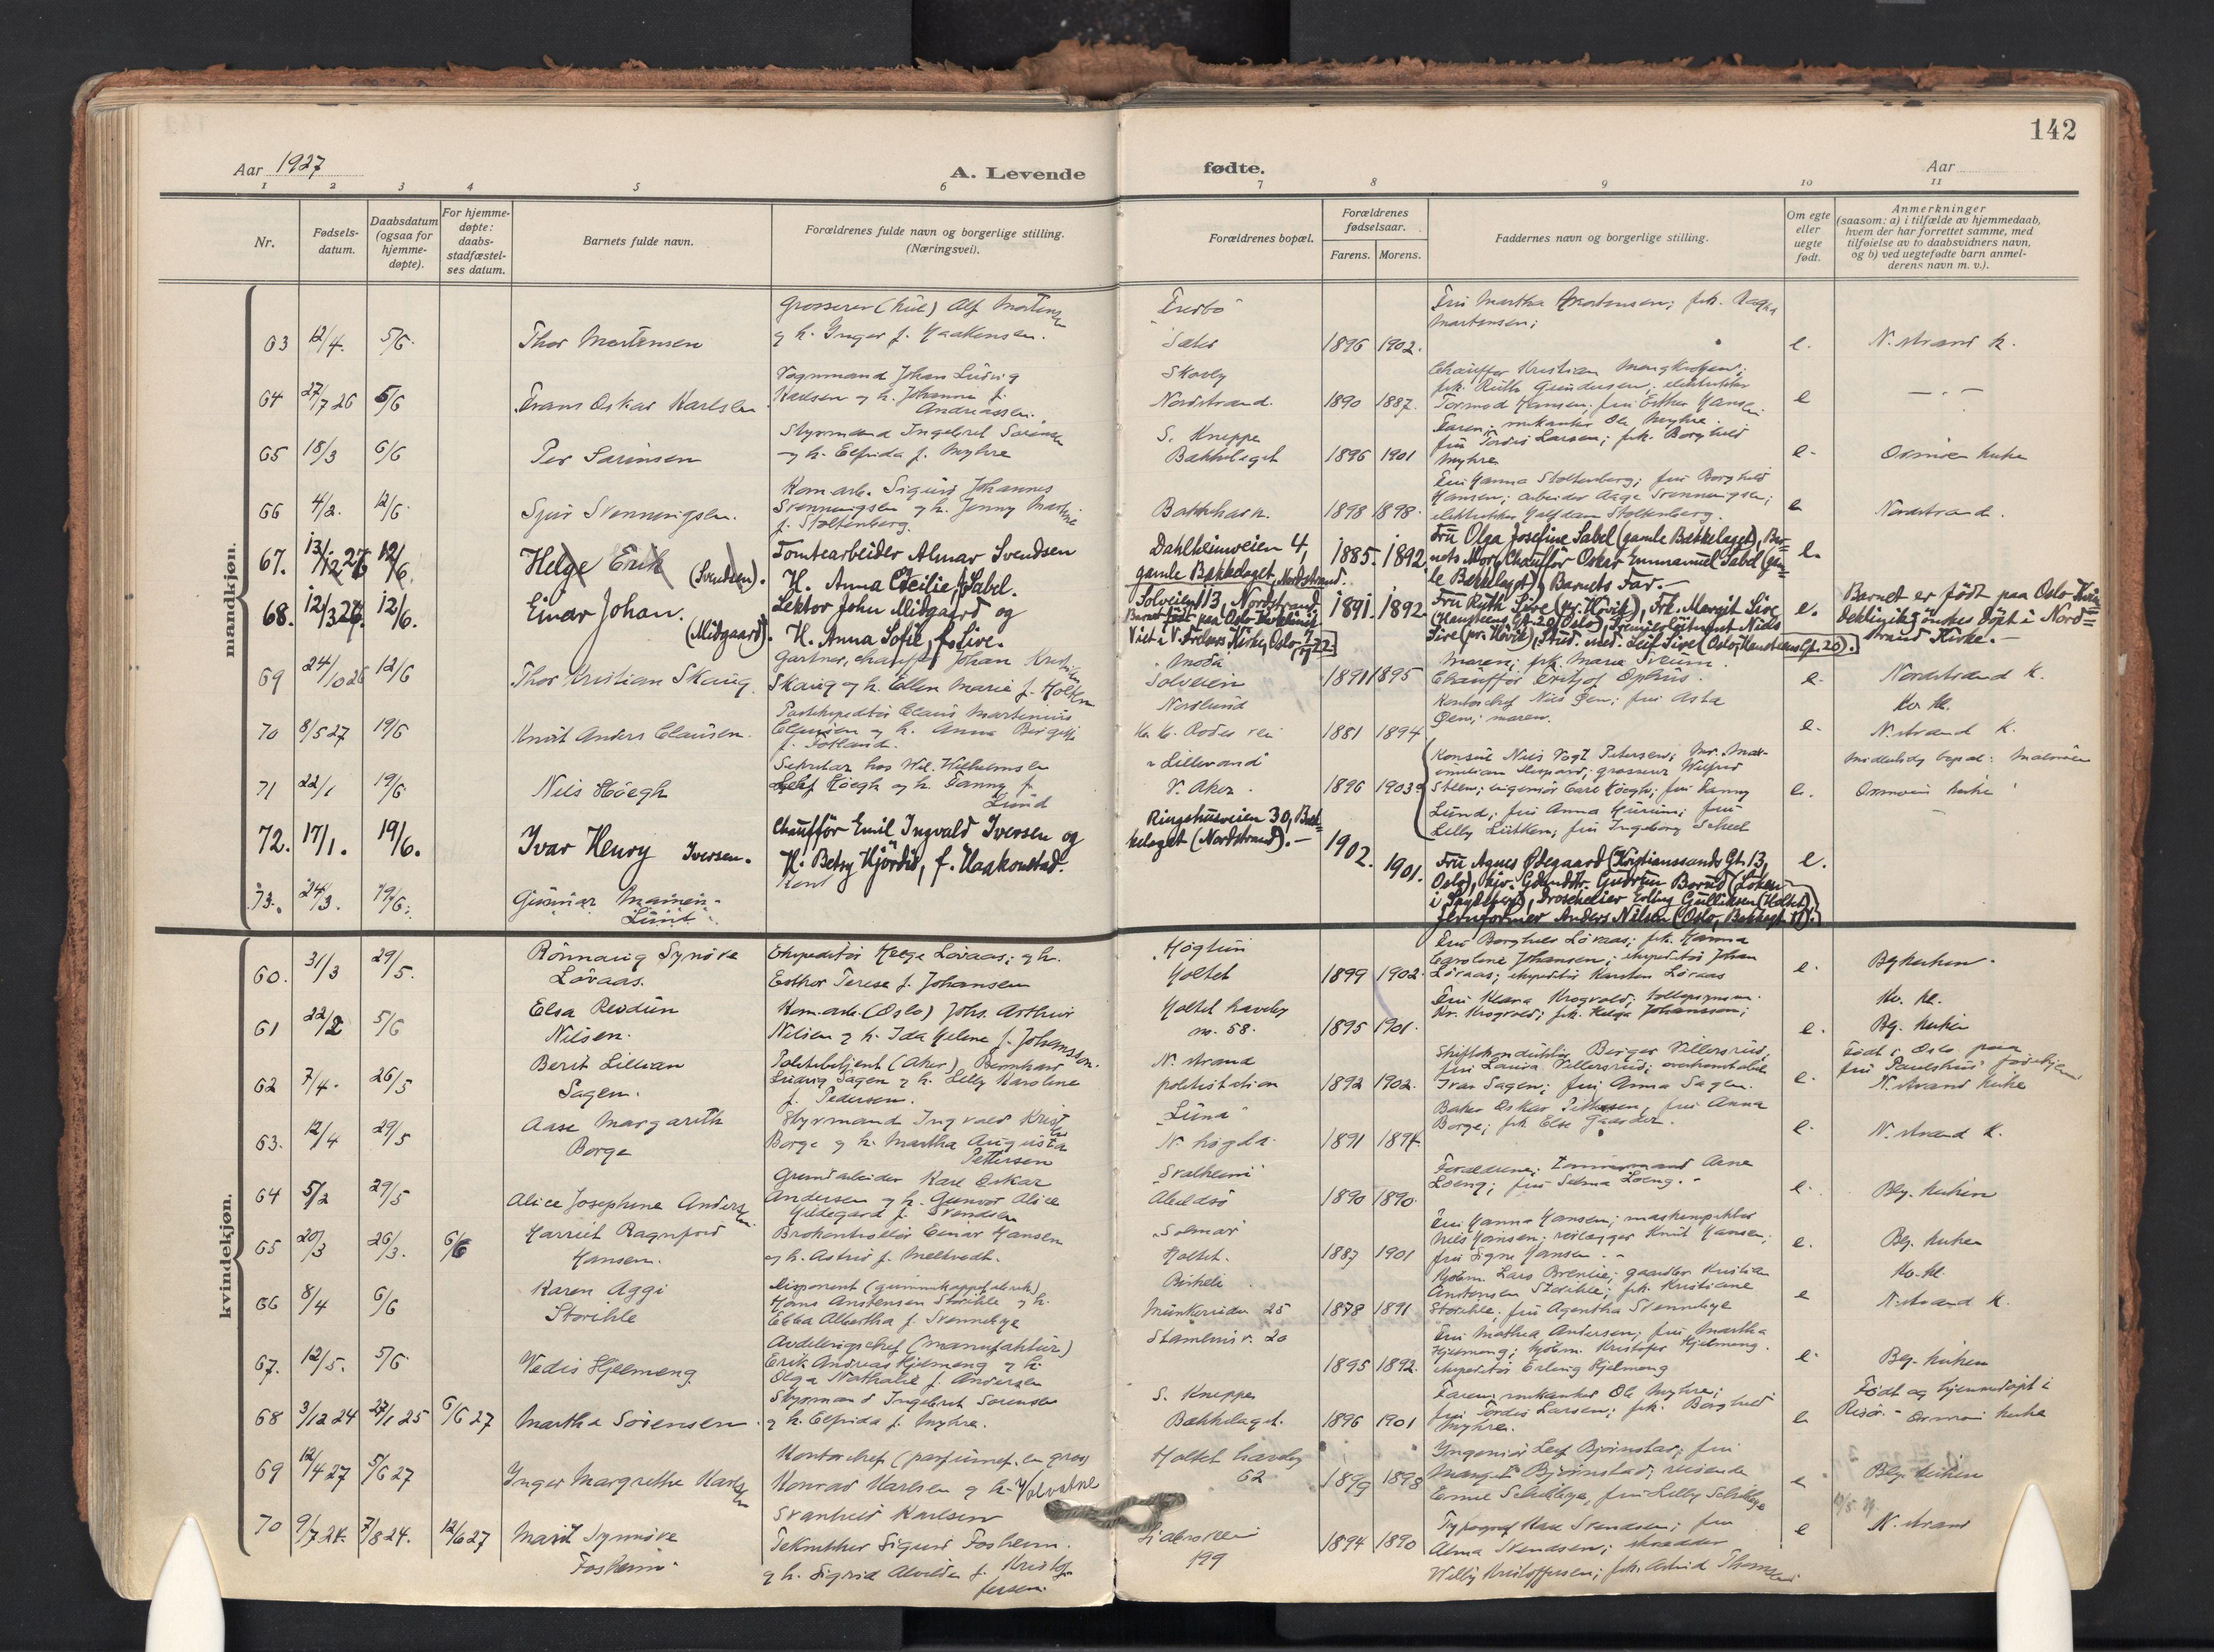 142
Aar 1927
A. Levende
fødte.
Aar
1 2 3 4 5 6 7 8 9 10 11
Nr.
Fødsels-
datum.
Daabsdatum
(ogsaa for
hjemme-
døpte).
For hjemme-
døpte:
daabs-
stadfæstel-
ses datum.
Barnets fulde navn.
Forældrenes fulde navn og borgerlige stilling.
(Næringsvei).
Forældrenes bopæl.
Forældrenes
fødselsaar.
Farens. Morens.
Faddernes navn og borgerlige stilling.
Om egte
eller
uegte
født.
Anmerkninger
(saasom: a) i tilfælde av hjemmedaab,
hvem der har forrettet samme, med
tilføielse av to daabsvidners navn,
og b) ved uegtefødte barn anmel-
derens navn m. v.).
mandkjøn.
63 12/4. 5/6. Thor Mortensen
Grosserer (kul) Alf Mortensen
og h. Inger f. Haakensen.
Sæter
1896 1902.
Fru Martha Mortensen; frk.
Martensen;
e. N. strand k.
64 27/7 26 5/6 Frans Oskar Karlsen
Vognmand Johan Ludvig
Karlsen og h. Johanne f.
Andreassen.
Skovly
Nordstrand.
1890 1887.
Chauffør Kristian
frk. Ruth Gundersen; elektriker
Tormod Hansen; fru Esther Hansen
e
65 18/3 6/6 Per Sørensen
Styrmand Ingebret Sørensen
og h. Elfrida f. Myhre
S. Kneppe
Bækkelaget
1896 1901
Faren; musikanter Ole Myhre.
fru Tordis Larsen; frk. Borghild
Myhre
e. Ormøen kirke
66 4/2. 12/6. Svenningsen.
Kom.arb. Sigurd Johannes
Svenningsen og h. Jenny
f. Stoltenberg.
1898 1898.
Fru Hanna Stoltenberg; fru Borghild
Hansen; arbeider Aage Svenningsen;
elektriker Halfdan Stoltenberg.
e Nordstrand.
67. 13/12 26 12/6. Helge Erik (Svendsen).
Tomtearbeider Almar Svendsen
H. Anna Cecilie, f. Sabel.
Dahlheimveien 4,
gamle Bækkelaget, Nordstrand.
1885. 1892
Fru Olga Josefine Sabel (gamle Bækkelaget), Bar=
nets Mor, Chauffør Oskar Emmanuel Sabel (gam=
le Bækkelaget), Barnets Far.—
e.
68. 12/3 27. 12/6. Einar Johan.
(Midgaard).
Lektor John Midgaard og
H. Anna Sofie, f. Sive.
Solveien 113, Nordstrand.
Barnet født paa Oslo Kvinneklinik
Viet i V. Frelsers Kirke, Oslo,
1891. 1892
Fru Ruth Sive (pr. Høvik), Frk. Margit Sive
(Hansteens Gt. 20, Oslo), Premierløitnant Niels
Sive (pr. Høvik), Stud. med. Leif Sive (Oslo, Hansteens Gt. 20).
e.
Barnet er født paa Oslo Kvin=
deklinik; ønskes døpt i Nord=
strand Kirke.—
69 24/10 26 12/6 Thor Kristian Skaug.
Gartner, chauffør Johan Kristian
Skaug og h. Ellen Marie f.
Solveien
1891 1895
Moren; frk. Marie
Chauffør Fritjof Ophus.
e. Nordstrand k.
70 8/5 27 19/6 Knut Anders Clausen.
Postekspeditør Claus Martinius
Clausen og h. Anna Birgitte
f. Fotland.
Nordlund
1881 1894
Kontorchef Nils Øen; fru Asta
Øen; moren.
e. N. strand k.
71 22/1 19/6 Nils Høegh
Sekretær hos Wil. Wilhelmsen
Leif Høegh og h. Fanny f.
Lund
Lillevand
V. Aker.
1896 1903
Konsul Niels Vogt Petersen;
grosserer Wilfred
Steen; ingeniør Carl Høegh; fru Fanny
Lund; fru Anna Hurum; fru
Lilly Lütken; fru Ingeborg Scheel
e. Midlertidig bopæl: Malmøen
Ormøen kirke
72. 17/1. 19/6. Ivar Henry Iversen.
Chauffør Emil Ingvald Iversen og
H. Betsy Hjørdis, f. Haakonstad.
Ringshusveien 30, Bæk=
kelaget (Nordstrand).—
1902. 1901.
Fru Agnes Ødegaard (Kristianssands Gt. 13,
Oslo), Gudrun Borud (Løken
i Spydeberg), Droscheeier Erling Gulliksen (Holtet),
Anders Nilsen (Oslo, Bakkegt. 11).
e.
73. 24/3. 19/6. Gunnar
kvindekjøn.
60. 31/3 29/5. Rønnaug Synøve
Løvaas.
Ekspeditør Helge Løvaas; og h.
Esther Terese f. Johansen
Høgtun
Holtet
1899 1902.
Fru Borghild Løvaas; frk. Hanna
Caroline Johansen; ekspeditør Johan
Løvaas; ekspeditør Karsten Løvaas
e.
61 22/2 5/6 Elsa Reidun
Nilsen.
Kom.arb. (Oslo) Johs. Arthur
Nilsen og h. Ida Helene f. Johansson.
Holtet haveby
no. 58.
1895 1901.
Fru Klara Krogvold;
Kr. Krogvold; frk. Helga Johansson;
e. Bg. kirken
62 7/4. 26/5 Berit Lillian
Sagen.
Politibetjent (Aker) Bernhard
Ludvig Sagen og h. Lilly Karoline
f. Pedersen.
N. strand
politistation
1892 1902.
Skiftekonduktør Berger Villersrud,
fru Laura Villersrud;
Ivar Sagen; fru Anna Sagen.
e. Født i Oslo paa
fru Paulshus fødehjem
N. strand kirke
63. 12/4 29/5 Aase Margarith
Borge
Styrmand Ingvald
Borge og h. Martha Augusta
Pettersen
Luna
N. høgda.
1891 1894.
Baker Oskar Pettersen, fru Anna
Borge; frk. Else Gaarder.
e. N. strand k.
64 5/2 29/5 Alice Josephine Andersen.
Grundarbeider Karl Oskar
Andersen og h. Gunvor Alice
Hildegard f. Svendsen
Solheim
Abildsø
1890 1890.
Forældrene; tømmermand Arne
Loeng; fru Selma Loeng.
e. Bg. kirken
65 20/3 26/3. 6/6 Harriet Ragnfrid
Hansen.
Einar Hansen
og h. Astrid f. Meltvedt.
Solmar
Holtet.
1887 1901
Fru Hanna Hansen; maskinpusser
Nils Hansen; rørlægger Knut Hansen;
fru Signe Hansen.
e. Bg. kirken
66 8/4 6/6 Karen Aggi
Størihle
Disponent
Hans Anstensen Størihle og h.
Ebba Albertha f. Svennebye
Birkeli
Munkerudv. 25
1878 1891
Kjøbm. Lars Brenlie; gaardbr. Kristian
Anstensen Størihle; frk. Kristiane
Størihle, fru Agentha Svennebye
e N. strand k.
67. 12/5. 5/6 Vedis Hjelmeng
Avdelingschef (manufaktur)
Erik Andreas Hjelmeng og h.
Olga Nathalie f. Andersen
Stamhusv. 20
1895 1892.
Fru Mathea Andersen, fru Martha
Hjelmeng; kjøbm. Kristofer Hjelmeng.
ekspeditør Erling Hjelmeng
e. Bg. kirken
68 3/12 24 27/1 25 6/6 27 Martha Sørensen.
Styrmand Ingebret Sørensen
og h. Elfrida f. Myhre.
S. Kneppe
Bækkelaget.
1896 1901
Faren; musikanter Ole Myhre;
fru Tordis Larsen; frk. Borghild
Myhre.
e Født og hjemmedøpt i
Risør. Ormøen kirke
69 12/4 27 5/6 27 Inger Margrethe Karlsen
Kontorchef (parfumef. en gros)
Konrad Karlsen og h. Valvalne
Svanhild Karlsen
Holtet haveby
62
1899 1898
Ingeniør Leif Bjørnstad; fru
Margit Bjørnstad; reisende
Schibbye, fru Lilly Schibbye
e Bg. kirken
70 9/7 24. 7/8 24. 12/6 27 Marit Synnøve
Fosheim.
Sigurd Fosheim.
og h. Sigrid Alvilda f. Kristof-
fersen.
199
1894 1890
Typograf Svendsen; fru
Alma Svendsen; skrædder
Willy Kristoffersen; frk. Astrid Thomsen.
e N. strand